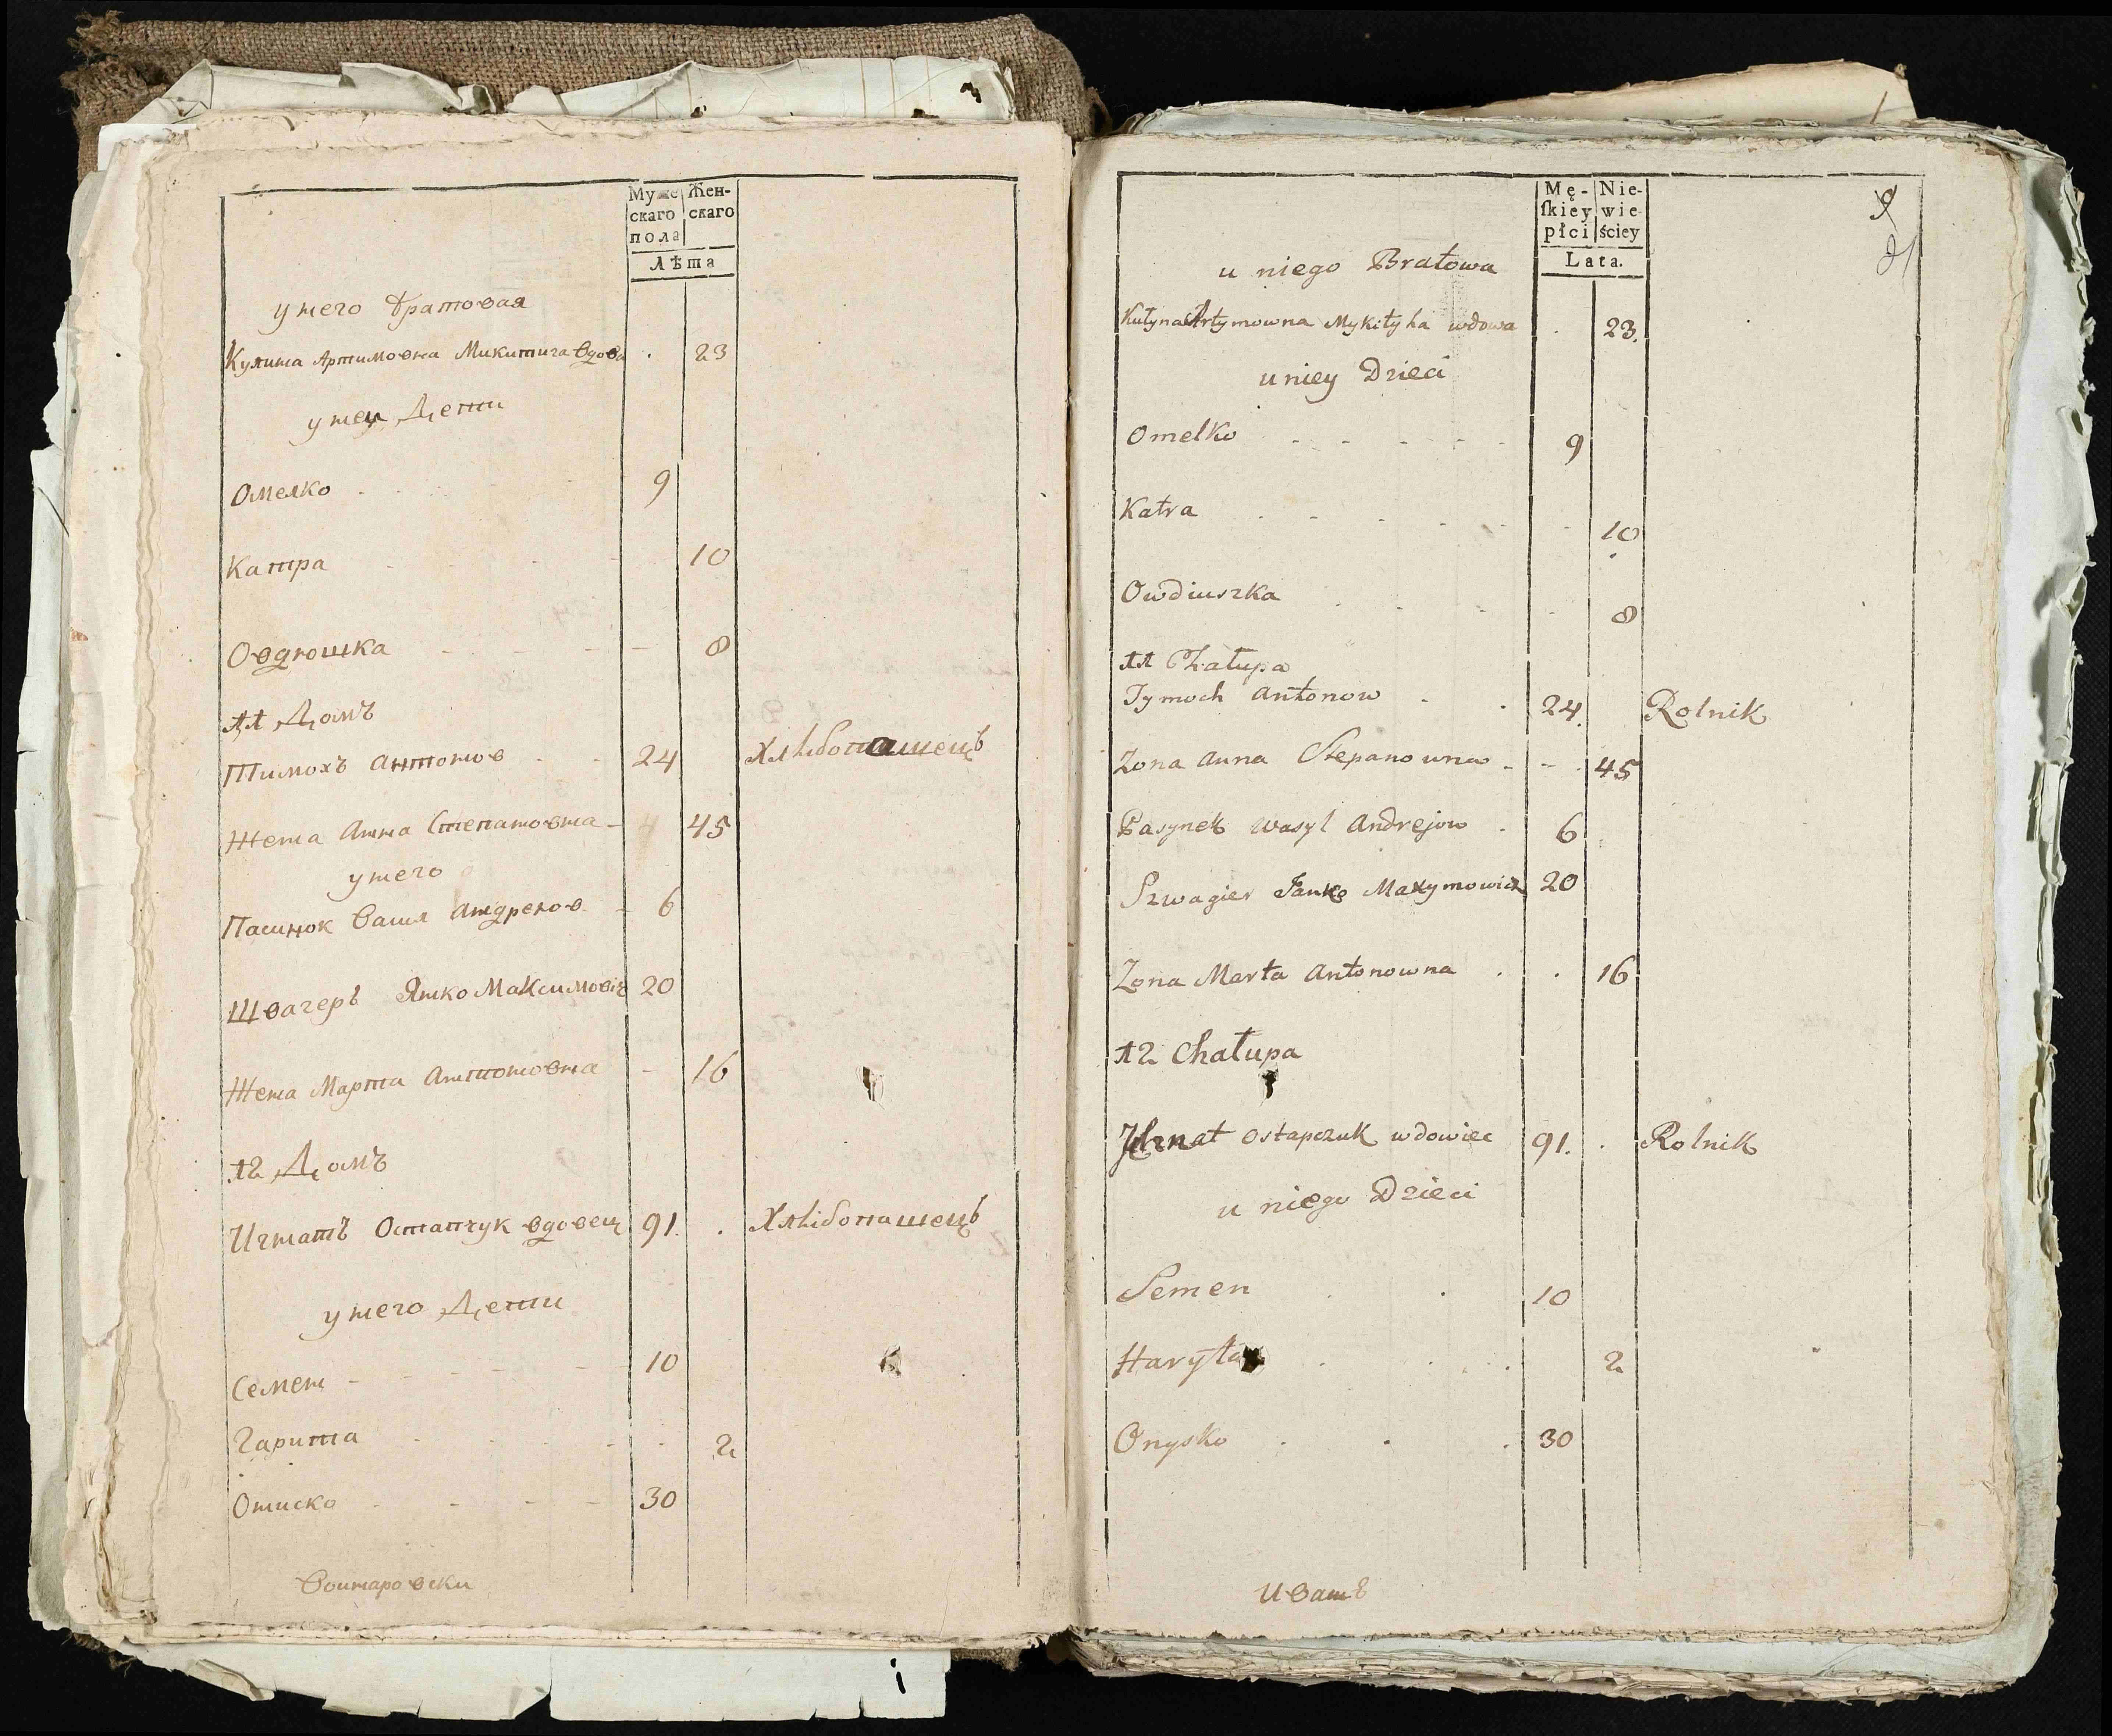 Муже
скаго
пола
Жен-
скаго
Лѣта
у него братовая
Кулина Артимовна Микитиха вдова . 23
у ней Дети
Омелко 9
Катра 10
Овдюшка 8
лл Домъ
Тимохъ Антонов 24 Хлѣбопашецъ
Жена Анна Степановна 45
у него
Пасинок Васил Андреюв 6
Швагеръ Янко Максимовіч 20
Жена Марта Антоновна 16
л2 Домъ
Игнатъ Остапчук вдовец 91. Хлѣбопашецъ
у него Дети
Семен 10
Гарипа 2
Ониско 30
Воитаровски
Mę-
skiey
płci
Nie-
wie-
ściey
Lata.
9
u niego Bratowa
Kułyna Artymowna Mykityha wdowa . 23.
u niey Dzieci
Omelko 9
Katra 10
Owdiuszka 8
лл Chałupa
Tymoch Antonow 24. Rolnik
Zona Anna Stepanowna 45
Pasynek Wasyl Andrejow 6
Szwagier Janko Maxymowicz 20
Zona Marta Antonowna 16
л2 Chałupa
Ihnat Ostapczuk wdowiec 91. Rolnik
u niego Dzieci
Semen 10
2
Onysko 30
Иванъ